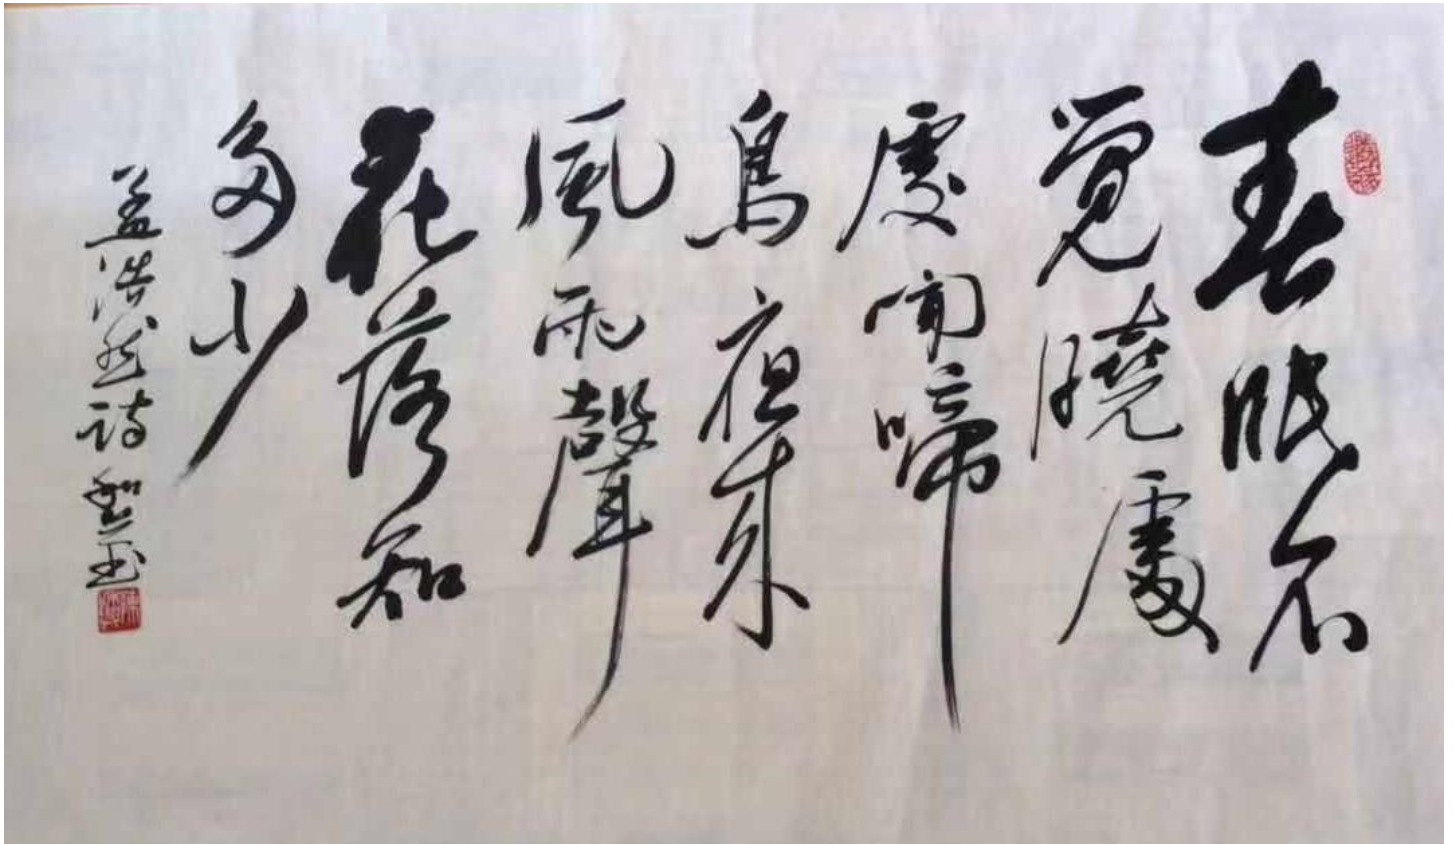 春眠不
觉曉處
處聞啼
鳥夜来
風雨聲
花落知
多少
孟浩然诗